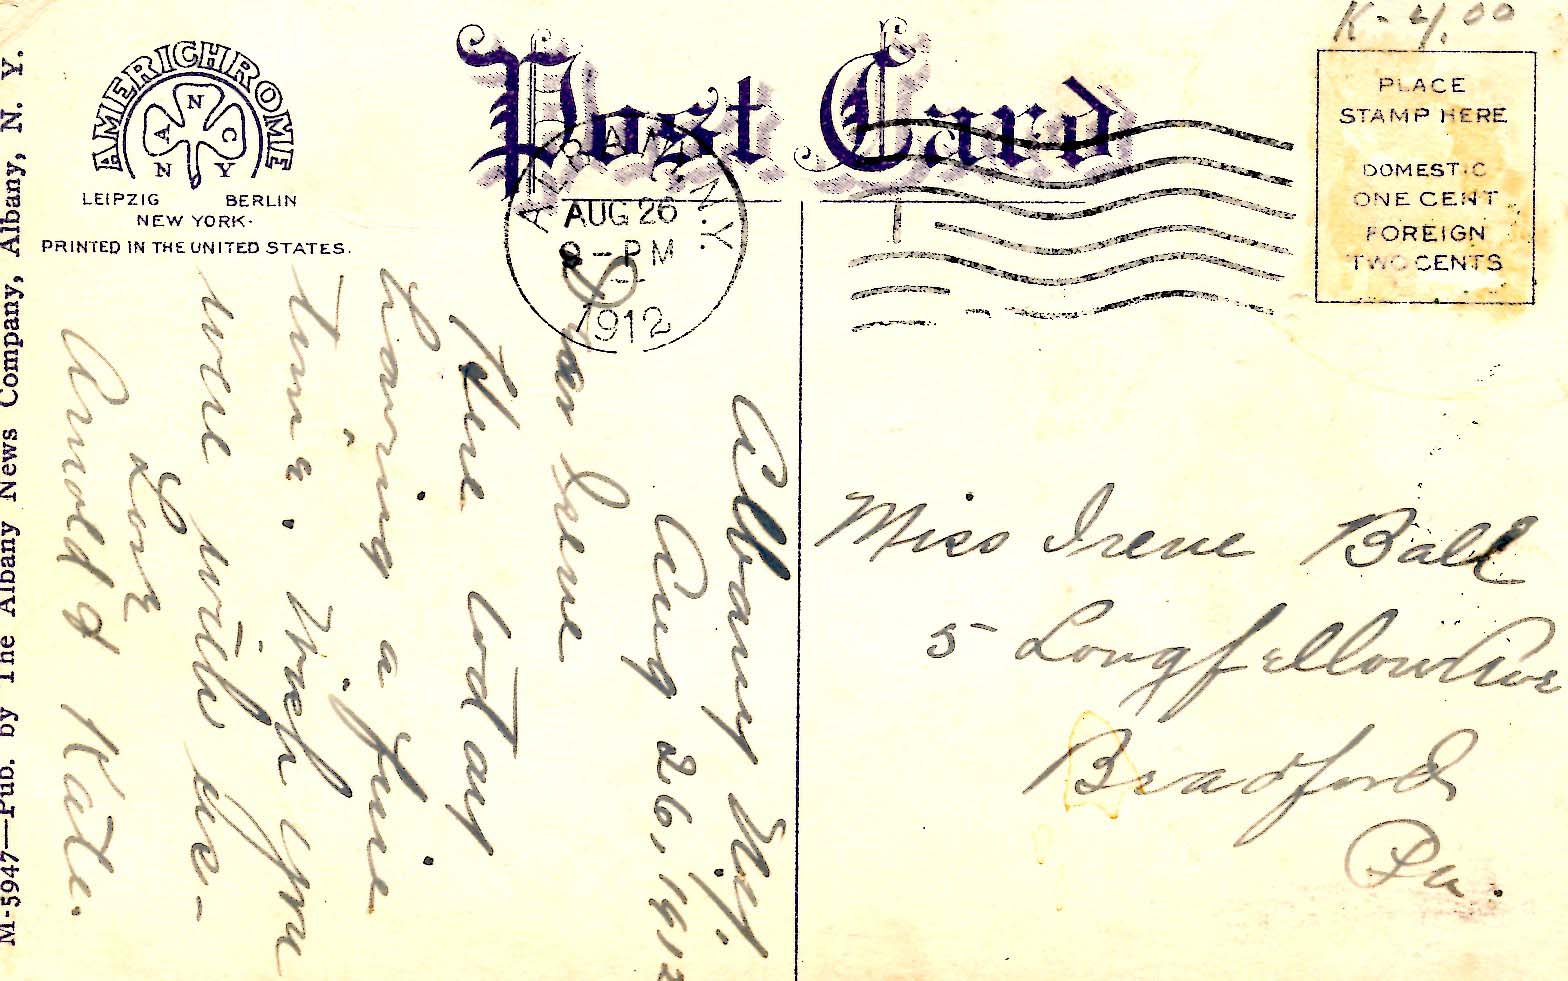 K- 4.00
AMERICHROME
N
A C
N Y
LEIPZIG BERLIN
NEW YORK.
PRINTED IN THE UNITED STATES.
Post Card
ALBANY, N.Y.
AUG 26
8-PM
1912
PLACE
STAMP HERE
DOMESTIC
ONE CENT
FOREIGN
TWO CENTS
M-5947—Pub. by The Albany News Company, Albany, N. Y.
Albany N.Y.
Aug 26, 1912
Dear Irene
Here today
having a fine
time. Wish you
were with us-
Love
Arnold & Kate.
Miss Irene Ball
5 Longfellow Ave
Bradford
Pa.